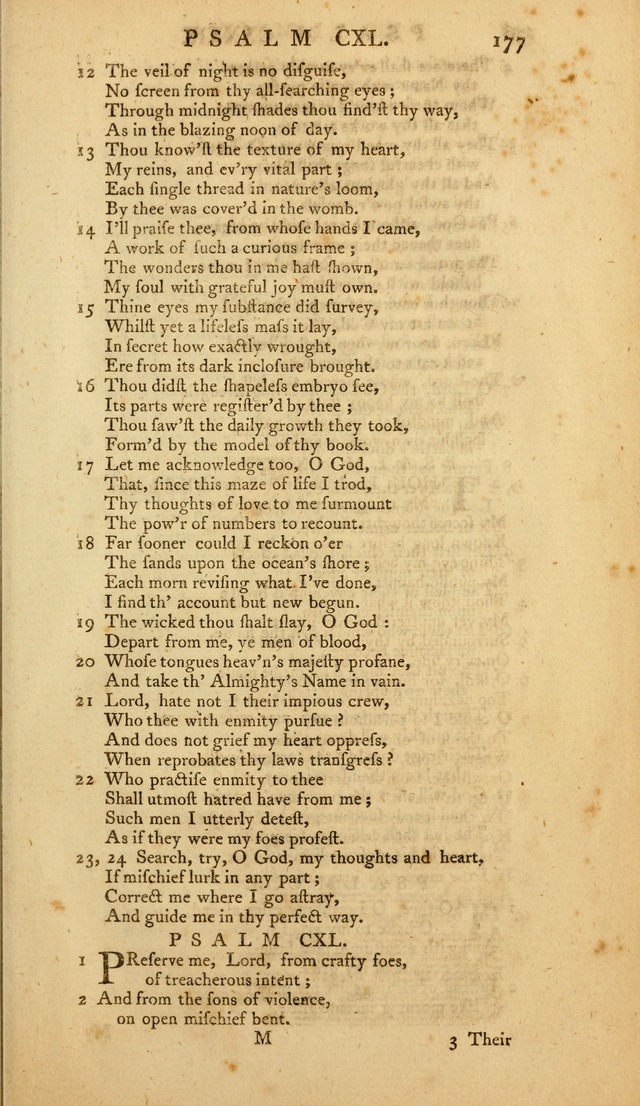 PSALM CXL. 177
12 The veil of night is no diſguiſe,
No ſcreen from thy all-ſearching eyes;
Through midnight ſhades thou find'ſt thy way,
As in the blazing noon of day.
13 Thou know'ſt the texture of my heart,
My reins, and ev'ry vital part;
Each ſingle thread in nature's loom,
By thee was cover'd in the womb.
14 I'll praiſe thee, from whoſe hands I came,
A work of ſuch a curious frame;
The wonders thou in me haſt ſhown,
My ſoul with grateful joy muſt own.
15 Thine eyes my ſubſtance did ſurvey,
Whilſt yet a lifeleſs maſs it lay,
In ſecret how exactly wrought,
Ere from its dark incloſure brought.
16 Thou didſt the ſhapeleſs embryo ſee,
Its parts were regiſter'd by thee;
Thou ſaw'ſt the daily growth they took,
Form'd by the model of thy book.
17 Let me acknowledge too, O God,
That, ſince this maze of life I trod,
Thy thoughts of love to me ſurmount
The pow'r of numbers to recount.
18 Far ſooner could I reckon o'er
The ſands upon the ocean's ſhore;
Each morn reviſing what I've done,
I find th' account but new begun.
19 The wicked thou ſhalt ſlay, O God:
Depart from me, ye men of blood,
20 Whoſe tongues heav'n's majeſty profane,
And take th' Almighty's Name in vain.
21 Lord, hate not I their impious crew,
Who thee with enmity purſue?
And does not grief my heart oppreſs,
When reprobates thy laws tranſgreſs?
22 Who practiſe enmity to thee
Shall utmoſt hatred have from me;
Such men I utterly deteſt,
As if they were my foes profeſt.
23, 24 Search, try, O God, my thoughts and heart,
If miſchief lurk in any part;
Correct me where I go aſtray,
And guide me in thy perfect way.
PSALM CXL.
1 PReſerve me, Lord, from crafty foes,
of treacherous intent;
2 And from the ſons of violence,
on open miſchief bent.
M 3 Their